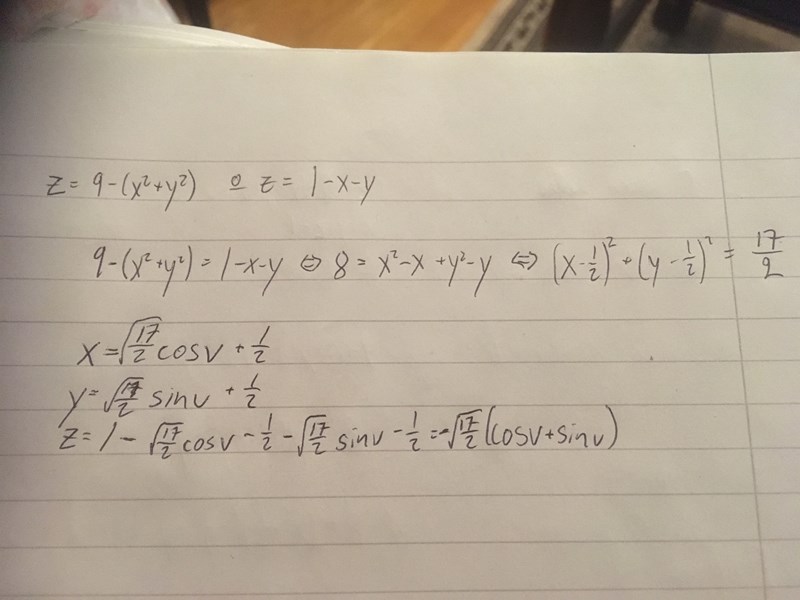 z = 9-(x²+y²) o z = 1-x-y
9-(x²+y²) = 1-x-y ⇔ 8 = x²-x+y²-y ⇔ (x-1/2)² + (y-1/2)² = 17/2
x = √(17/2) cosv + 1/2
y = √(17/2) sinv + 1/2
z = 1 - √(17/2) cosv - 1/2 - √(17/2) sinv - 1/2 = -√(17/2) (cosv+sinv)